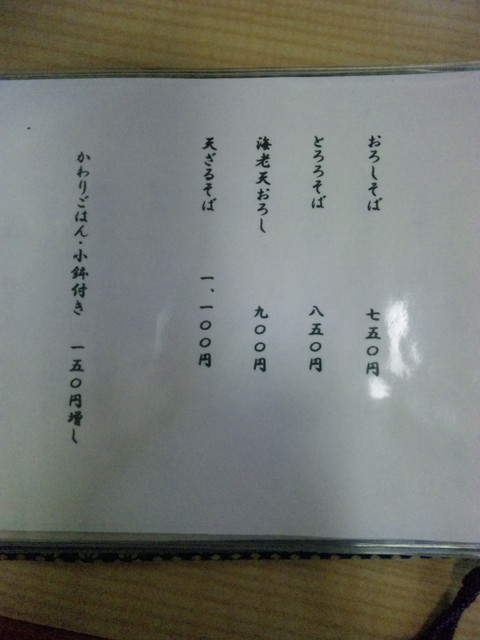 おろしそば 七五〇円
とろろそば 八五〇円
海老天おろし 九〇〇円
天ざるそば 一、一〇〇円
かわりごはん・小鉢付き 一五〇円増し